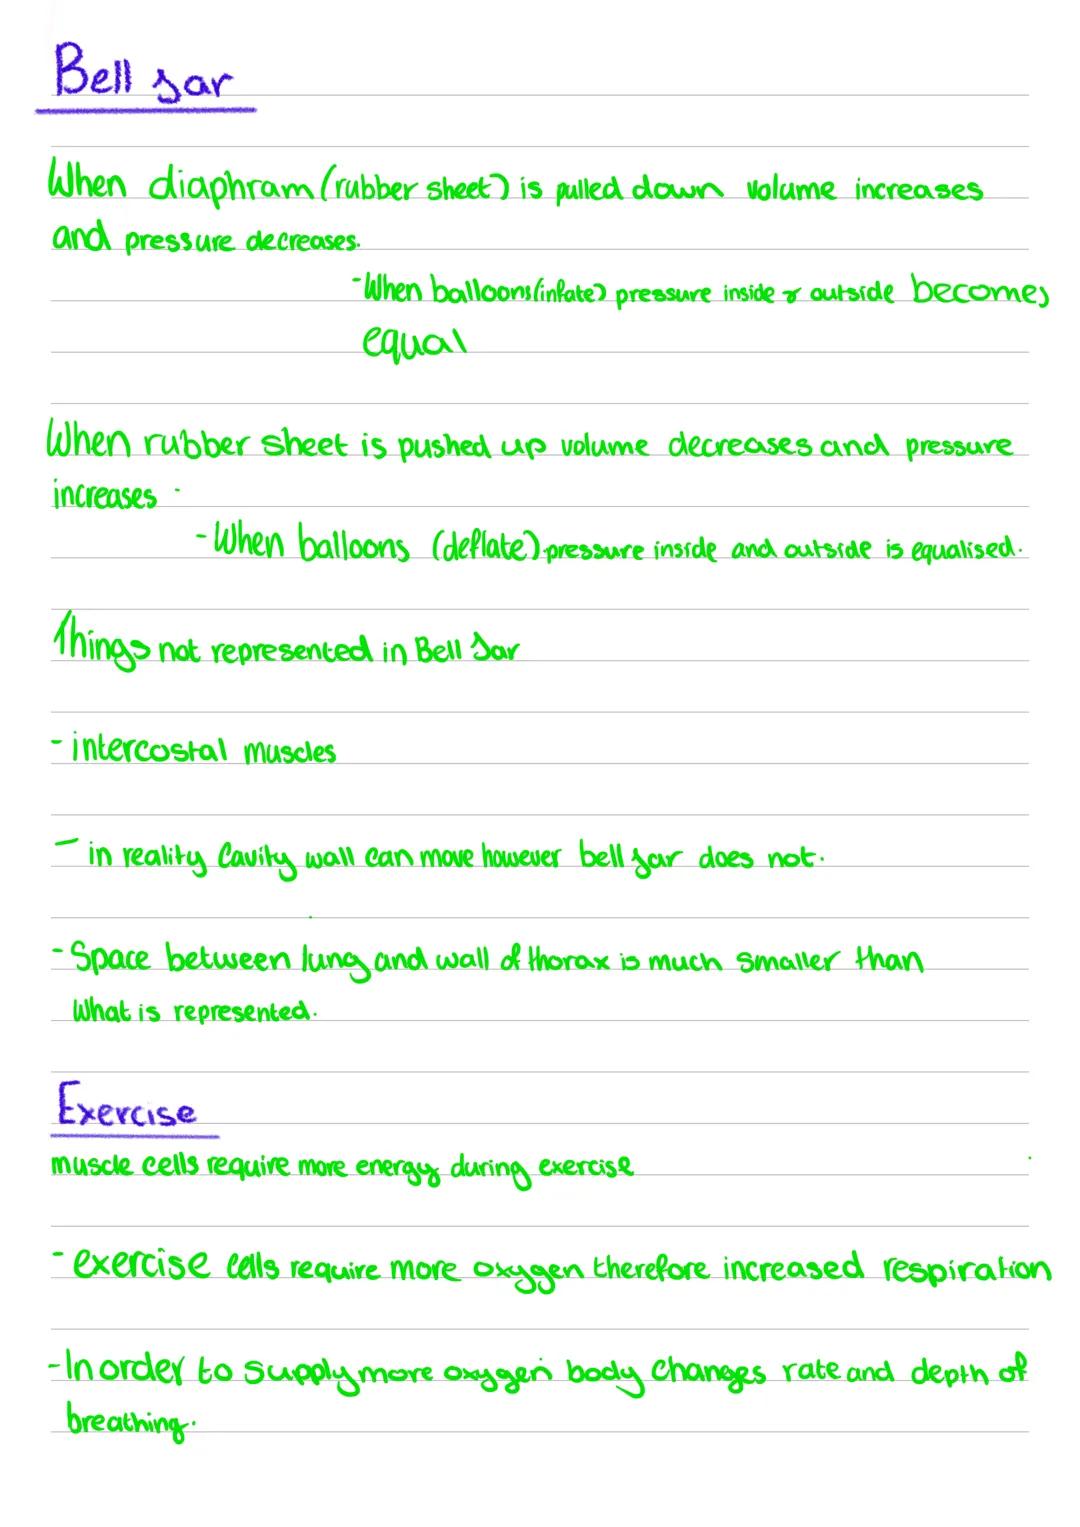 Bell Jar
When diaphram (rubber sheet) is pulled down volume increases
and pressure decreases.
-When balloons (infate) pressure inside & outside becomes
equal
When rubber sheet is pushed up volume decreases and pressure
increases.
-When balloons (deflate) pressure inside and outside is equalised.
Things not represented in Bell Jar
- intercostal muscles
- in reality Cavity wall can move however bell jar does not.
- Space between lung and wall of thorax is much smaller than
What is represented.
Exercise
muscle cells require more energy during exercise
- exercise cells require more oxygen therefore increased respiration
- In order to supply more oxygen body changes rate and depth of
breathing.